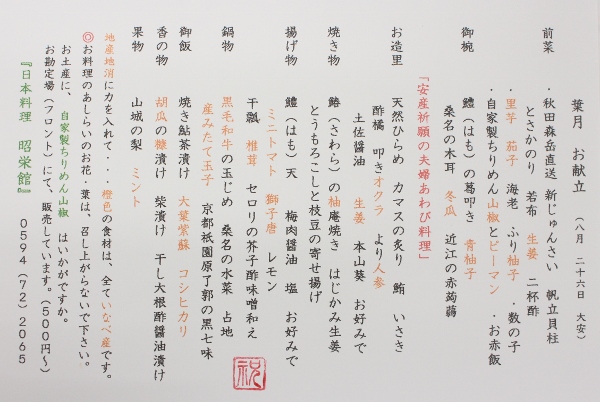 葉月　お献立　（八月　二十六日　大安）
前菜　・秋田森岳直送　新じゅんさい　帆立貝柱
とさかのり　若布　生姜　二杯酢
・里芋　茄子　海老　ふり柚子　・数の子
・自家製ちりめん山椒とピーマン　・お赤飯
御椀　鱧（はも）の葛叩き　青柚子
桑名の木耳　冬瓜　近江の赤蒟蒻
「安産祈願の夫婦あわび料理」
お造里　天然ひらめ　カマスの炙り　鮪　いさき
酢橘　叩きオクラ　より人参
土佐醤油　生姜　本山葵　お好みで
焼き物　鰆（さわら）の柚庵焼き　はじかみ生姜
とうもろこしと枝豆の寄せ揚げ
揚げ物　鱧（はも）天　梅肉醤油　塩　お好みで
ミニトマト　獅子唐　レモン
干瓢　椎茸　セロリの芥子酢味噌和え
鍋物　黒毛和牛の玉じめ　桑名の水菜　占地
産みたて玉子　京都祇園原了郭の黒七味
御飯　焼き鮎茶漬け　大葉紫蘇　コシヒカリ
香の物　胡瓜の糠漬け　柴漬け　干し大根酢醤油漬け
果物　山城の梨　ミント
地産地消に力を入れて・・・橙色の食材は、全ていなべ産です。
◎お料理のあしらいのお花・葉は、召し上がらないで下さい。
お土産に、　自家製ちりめん山椒　はいかがですか。
お勘定場（フロント）にて、販売しています。（５００円～）
『日本料理　昭栄館』　０５９４（７２）２０６５
祝